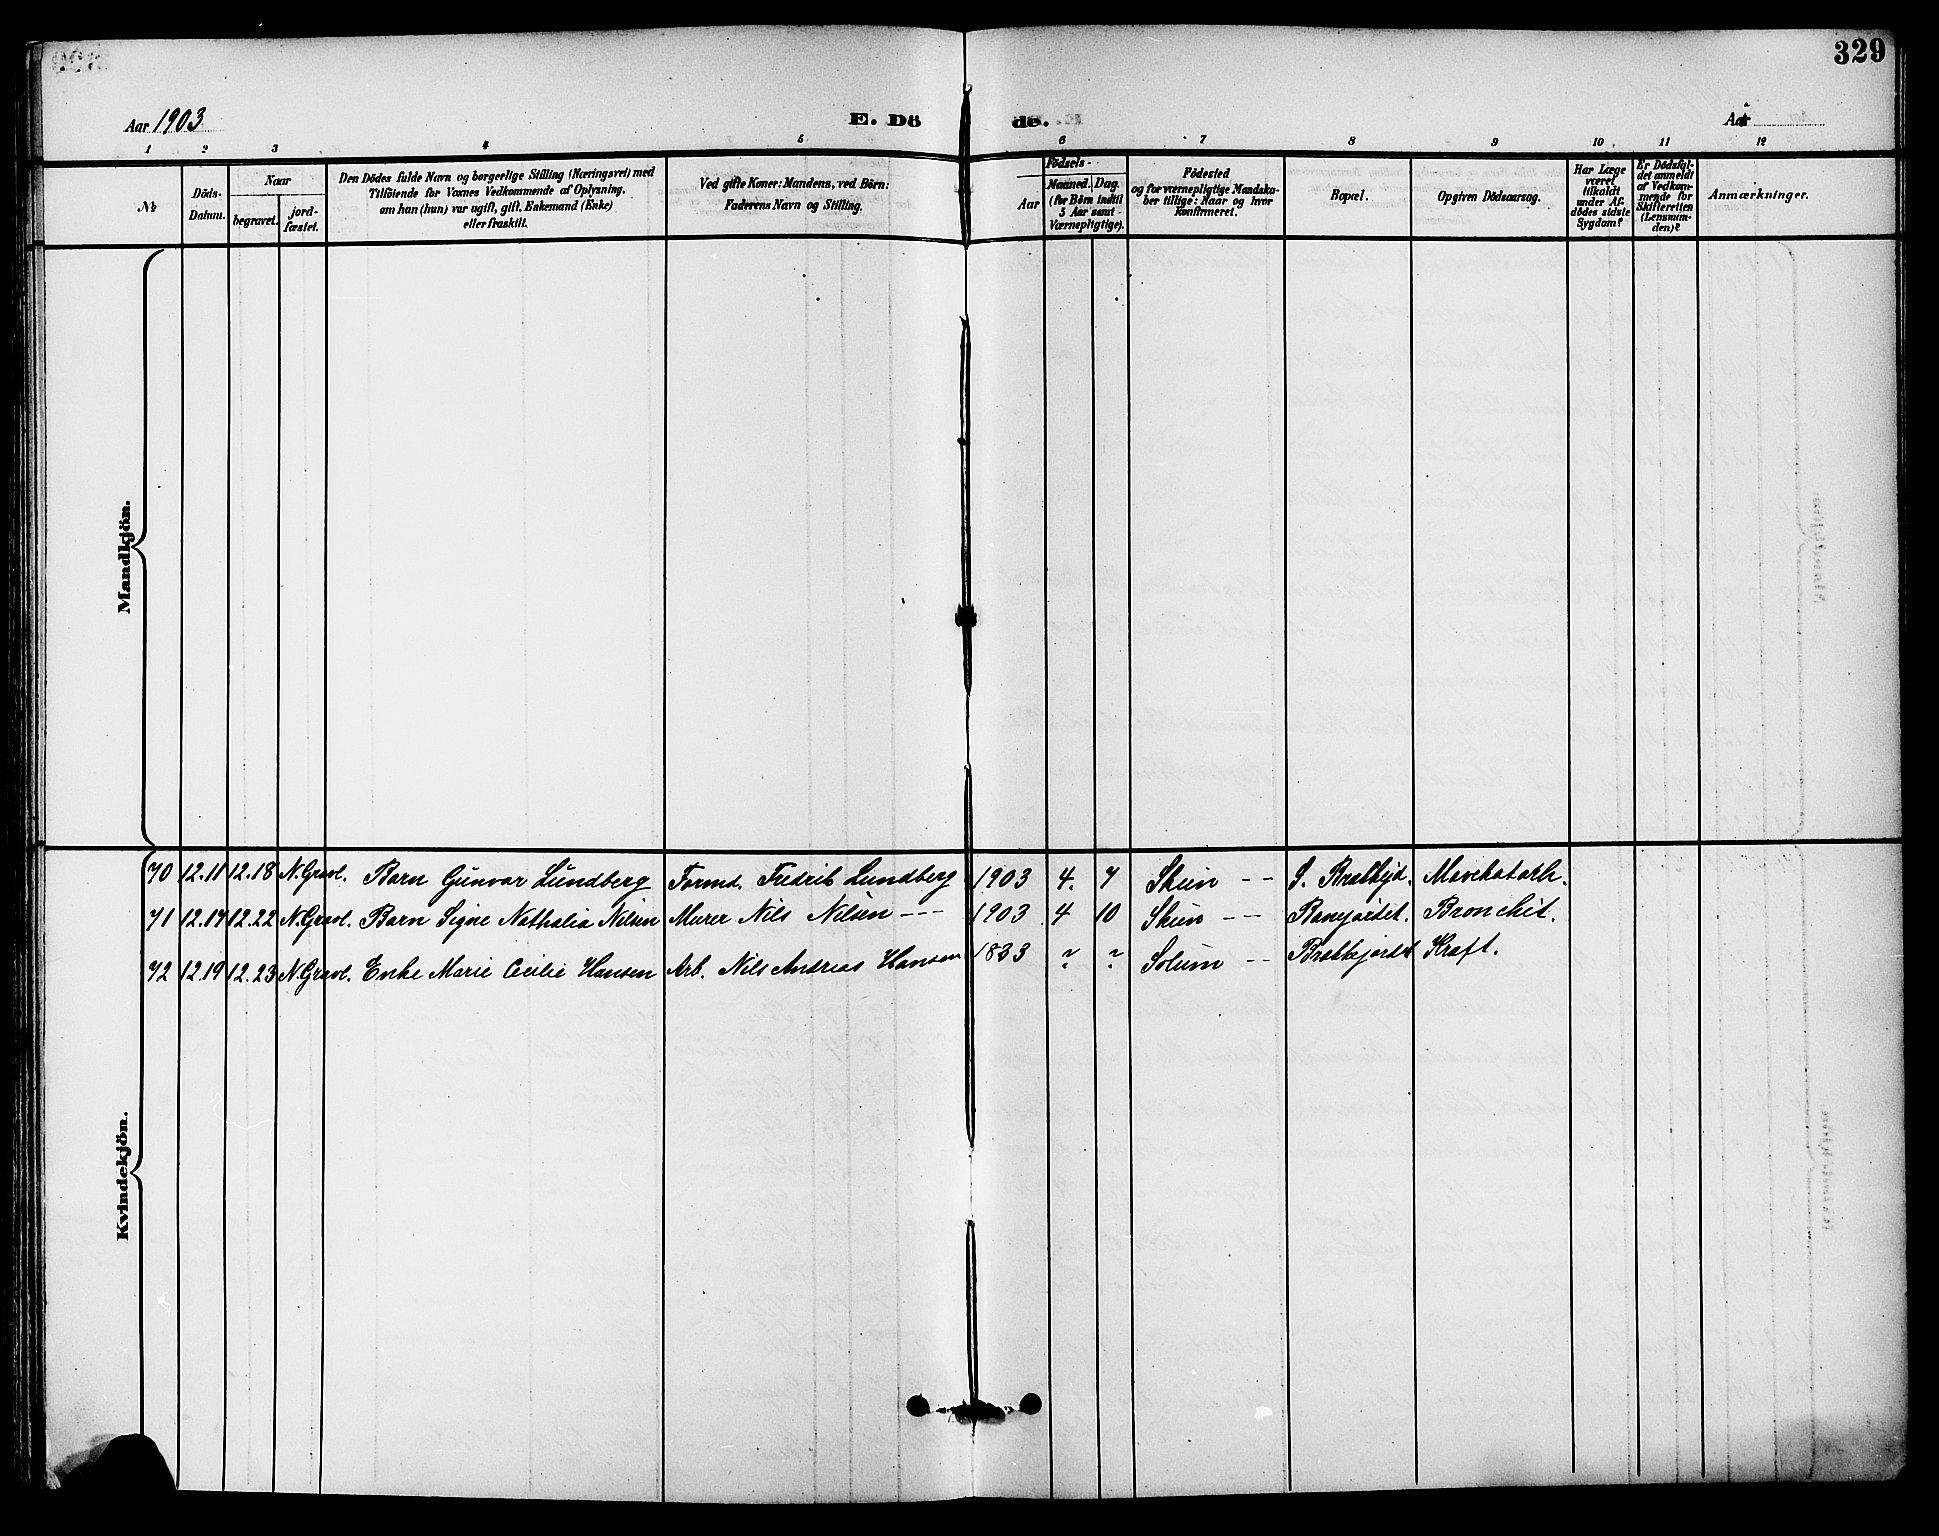 329
Aar 1903
E. Dö
de.
Aar
1 2 3 4 5 6 7 8 9 10 11 12
№
Döds-
Datum.
Naar
begravet.
jord-
fæstet.
Den Dödes fulde Navn og borgerlige Stilling (Næringsvei) med
Tilföiende for Voxnes Vedkommende af Oplysning,
om han (hun) var ugift, gift, Enkemand (Enke)
eller fraskilt.
Ved gifte Koner: Mandens, ved Börn:
Faderens Navn og Stilling.
Födsels-
Aar
Maaned. Dag.
(for Börn indtil
5 Aar samt
Værnepligtige).
Födested
og for værnepligtige Mandska-
ber tillige: Naar og hvor
Konfirmeret.
Bopæl.
Opgiven Dödsaarsag.
Har Læge
været
tilkaldt
under Af-
dödes sidste
Sygdom?
Er Dödsfal-
det anmeldt
af Vedkom-
mende for
Skifteretten
(Lensman-
den)?
Anmærkninger.
Mandkjön.
Kvindekjön.
70 12.11 12.18 N. Gravl. Barn Gunvor Lundberg Formd. Fredrik Lundberg 1903 4. 7 Skien -- S. Bratbjd. Mavekatarh.
71 12.17 12.22 N. Gravl. Barn Signe Nathalia Nilsen Murer Nils Nilsen --- 1903 4 10 Skien -- Bronchit.
72 12.19 12.23 N. Gravl. Enke Marie Cecilie Hansen Arb. Nils Andreas Hansen 1833 ? ? Solum -- Kræft.